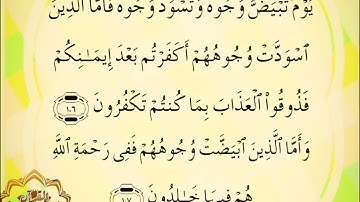 يَوْمَ تَبْيَضُّ وُجُوهٌ وَتَسْوَدُّ وُجُوهٌ فَأَمَّا الَّذِينَ
ٱسْوَدَّتْ وُجُوهُهُمْ أَكَفَرْتُم بَعْدَ إِيمَـٰنِكُمْ
فَذُوقُوا۟ ٱلْعَذَابَ بِمَا كُنتُمْ تَكْفُرُونَ ١٠٦
وَأَمَّا ٱلَّذِينَ ٱبْيَضَّتْ وُجُوهُهُمْ فَفِى رَحْمَةِ ٱللَّهِ
هُمْ فِيهَا خَـٰلِدُونَ ١٠٧